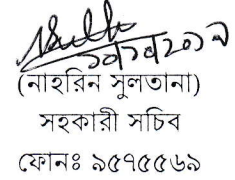 (নাহরিন সুলতানা)
সহকারী সচিব
ফোনঃ ৯৫৭৫৫৬৯